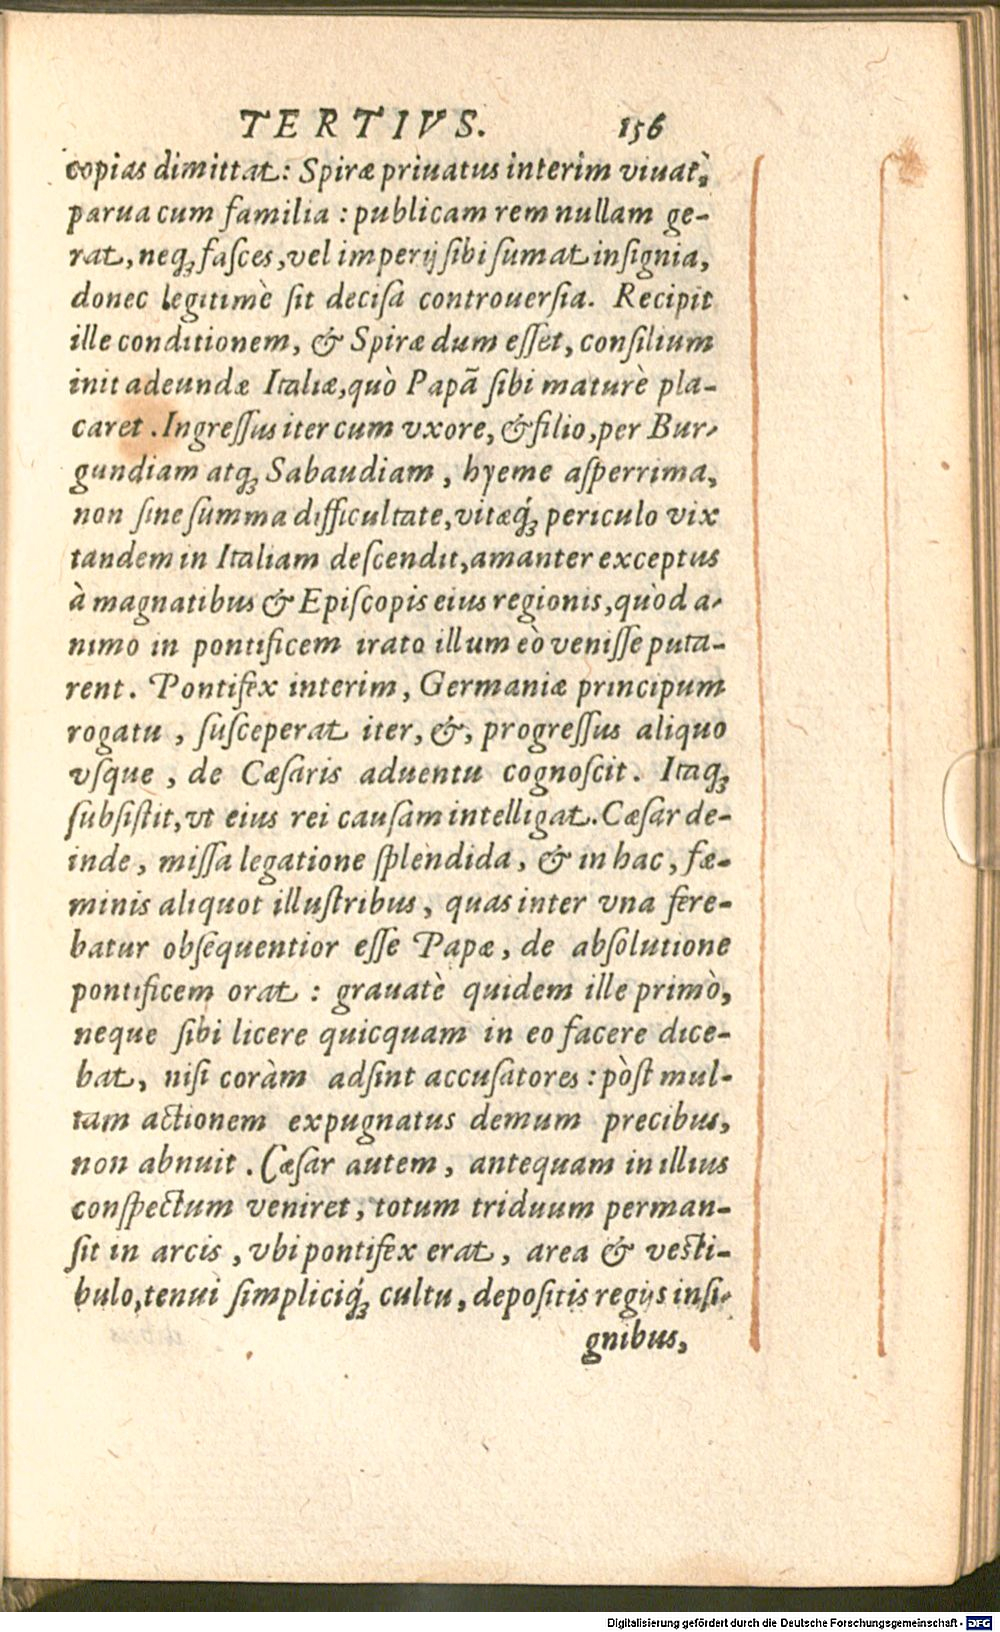 TERTIVS. 156
copias dimittat: Spiræ priuatus interim viuat,
parua cum familia: publicam rem nullam ge-
rat, neq; faſces, vel imperij ſibi ſumat inſignia,
donec legitimè ſit deciſa controuerſia. Recipit
ille conditionem, & Spiræ dum eſſet, conſilium
init adeundæ Italiæ, quò Papã ſibi maturè pla-
caret. Ingreſſus iter cum vxore, & filio, per Bur-
gundiam atq; Sabaudiam, hyeme aſperrima,
non ſine ſumma difficultate, vitæq́; periculo vix
tandem in Italiam deſcendit, amanter exceptus
à magnatibus & Epiſcopis eius regionis, quòd a-
nimo in pontificem irato illum eò veniſſe puta-
rent. Pontifex interim, Germaniæ principum
rogatu, ſuſceperat iter, &, progreſſus aliquo
vſque, de Cæſaris aduentu cognoſcit. Itaq;
ſubſiſtit, vt eius rei cauſam intelligat. Cæſar de-
inde, miſſa legatione ſplendida, & in hac, fæ-
minis aliquot illuſtribus, quas inter vna fere-
batur obſequentior eſſe Papæ, de abſolutione
pontificem orat: grauatè quidem ille primò,
neque ſibi licere quicquam in eo facere dice-
bat, niſi coràm adſint accuſatores: pòſt mul-
tam actionem expugnatus demum precibus,
non abnuit. Cæſar autem, antequam in illius
conſpectum veniret, totum triduum perman-
ſit in arcis, vbi pontifex erat, area & veſti-
bulo, tenui ſimpliciq́; cultu, depoſitis regijs inſi-
gnibus,
Digitalisierung gefördert durch die Deutsche Forschungsgemeinschaft - DFG